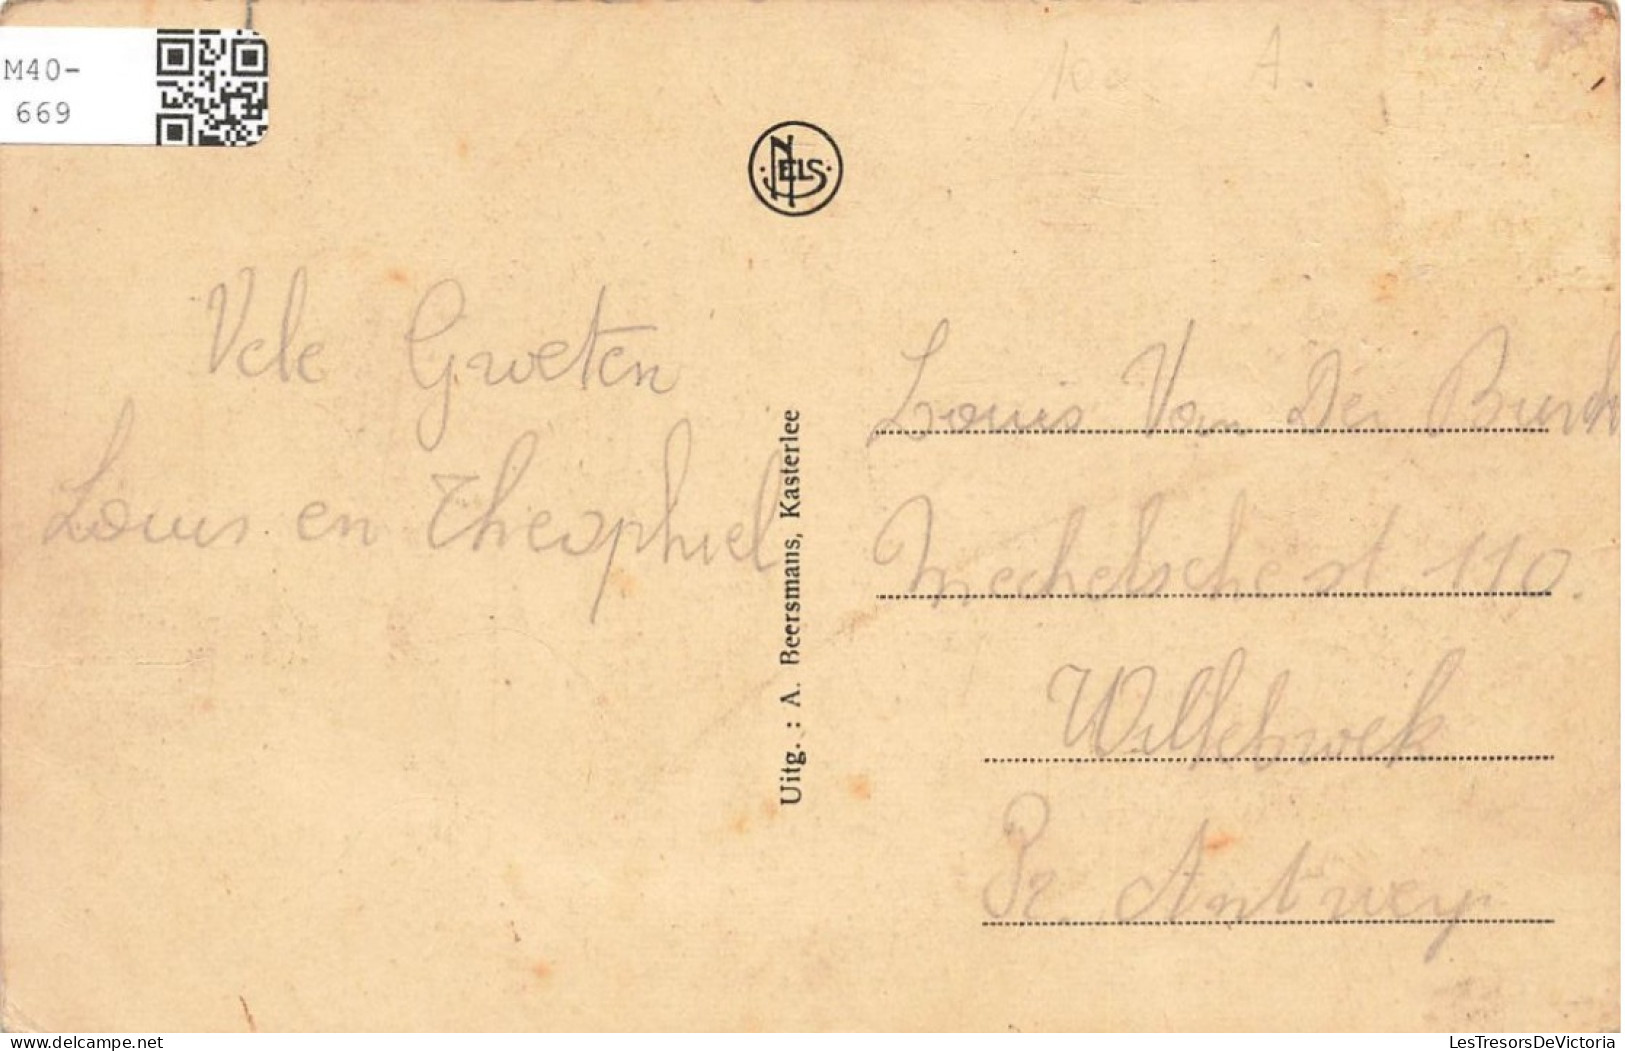 M40-
669
NELS
Vele Groeten
Louis en Theophiel
Uitg. : A. Beersmans, Kasterlee
Louis Van Der
Mechelschest. 110.
Willebroek
Pr. Antwerp
delcampe.net
LesTresorsDeVictoria